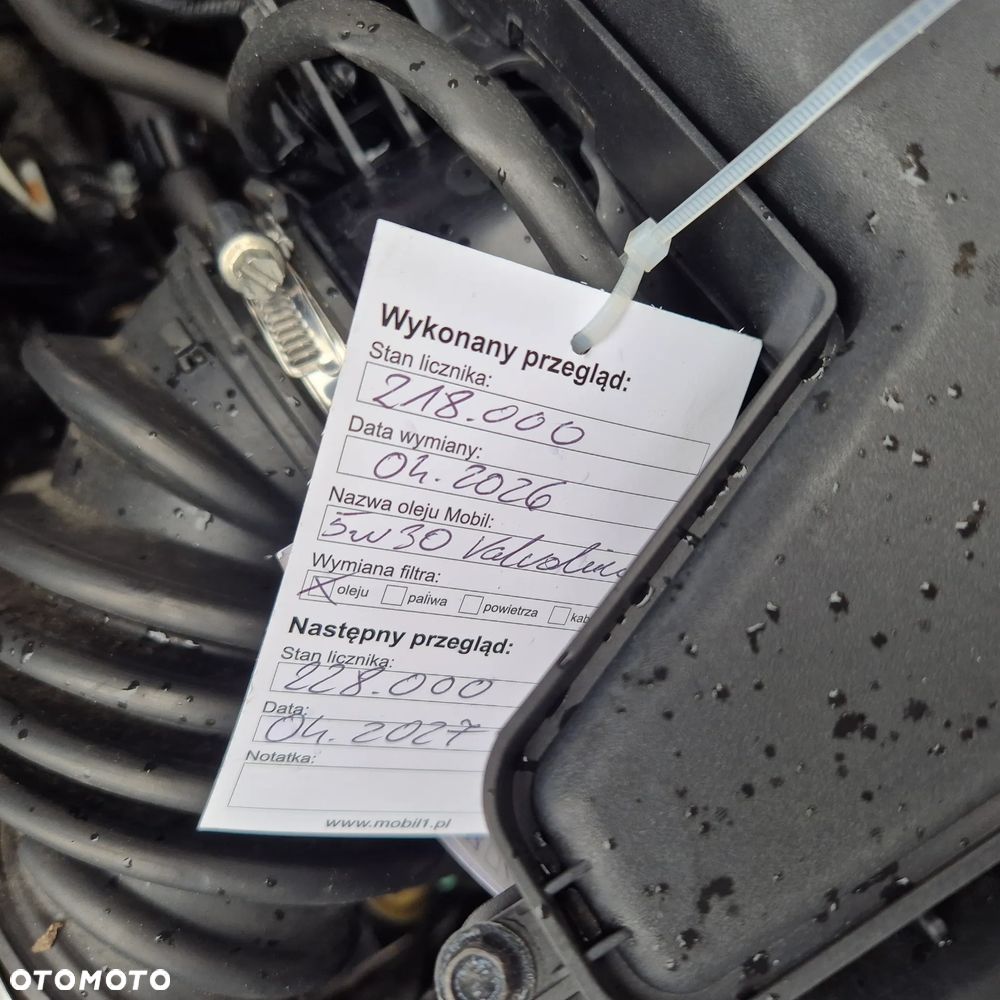 Wykonany przegląd:
Stan licznika:
218.000
Data wymiany:
04.2026
Nazwa oleju Mobil:
5w30 Valvoline
Wymiana filtra:
oleju paliwa powietrza kab
Następny przegląd:
Stan licznika:
228.000
Data:
04.2027
Notatka:
www.mobil1.pl
OTOMOTO